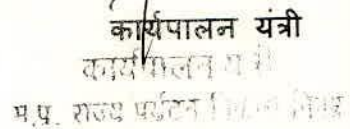 कार्यपालन यंत्री
कार्यपालन यंत्री
म.प्र. राज्य पर्यटन विकास निगम